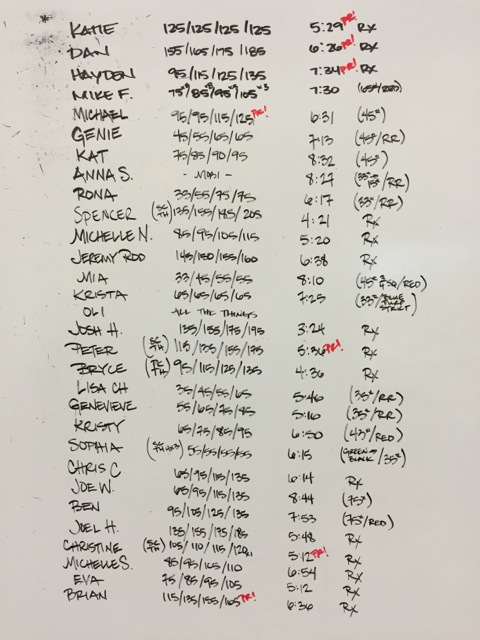 KATIE 125/125/125/125 5:29 PR! RX
DAN 155/165/175/185 6:26 PR! RX
HAYDEN 95/115/125/135 7:34 PR! RX
MIKE F. 75/85/95/105 7:30
MICHAEL 95/95/115/125 PR! 6:31 (45#)
GENIE 45/55/65/65 7:13 (45#/RR)
KAT 75/85/90/95 8:32 (45#)
ANNA S. 8:27
RONA 33/55/75/75 6:17 (33#/RR)
SPENCER 135/155/185/205 4:21 RX
MICHELLE N. 85/95/105/115 5:20 RX
JEREMY ROD 145/150/155/160 6:38 RX
MIA 33/45/55/55 8:10
KRISTA 65/65/65/65 7:25
OLI ALL THE THINGS
JOSH H. 135/155/175/195 3:24 RX
PETER 115/135/155/175 5:36 PR! RX
BRYCE 95/115/125/135 4:36 RX
LISA CH 35/45/55/65 5:46 (35#/RR)
GENEVIEVE 55/65/75/85 5:16 (35#/RR)
KRISTY 65/75/85/95 6:50 (43#/RED)
SOPHIA 55/55/55/55 6:15 (GREEN → BLACK/35#)
CHRIS C 65/95/115/135 6:14 RX
JOE W. 65/95/115/135 8:44 (75#)
BEN 95/105/125/135 7:53 (75#/RED)
JOEL H. 135/155/175/185 5:48 RX
CHRISTINE 105/110/115/120 5:12 PR! RX
MICHELLE S. 85/95/105/110 6:54 RX
EVA 75/85/95/105 5:12 RX
BRIAN 115/135/155/165 PR! 6:36 RX